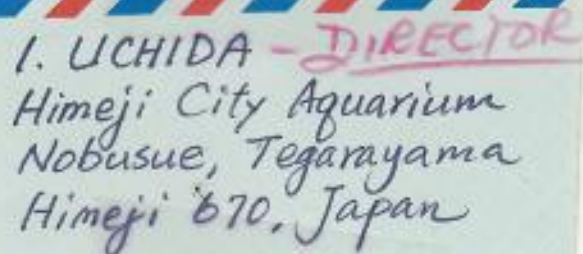 I. UCHIDA - DIRECTOR
Himeji City Aquarium
Nobusue, Tegarayama
Himeji 670, Japan